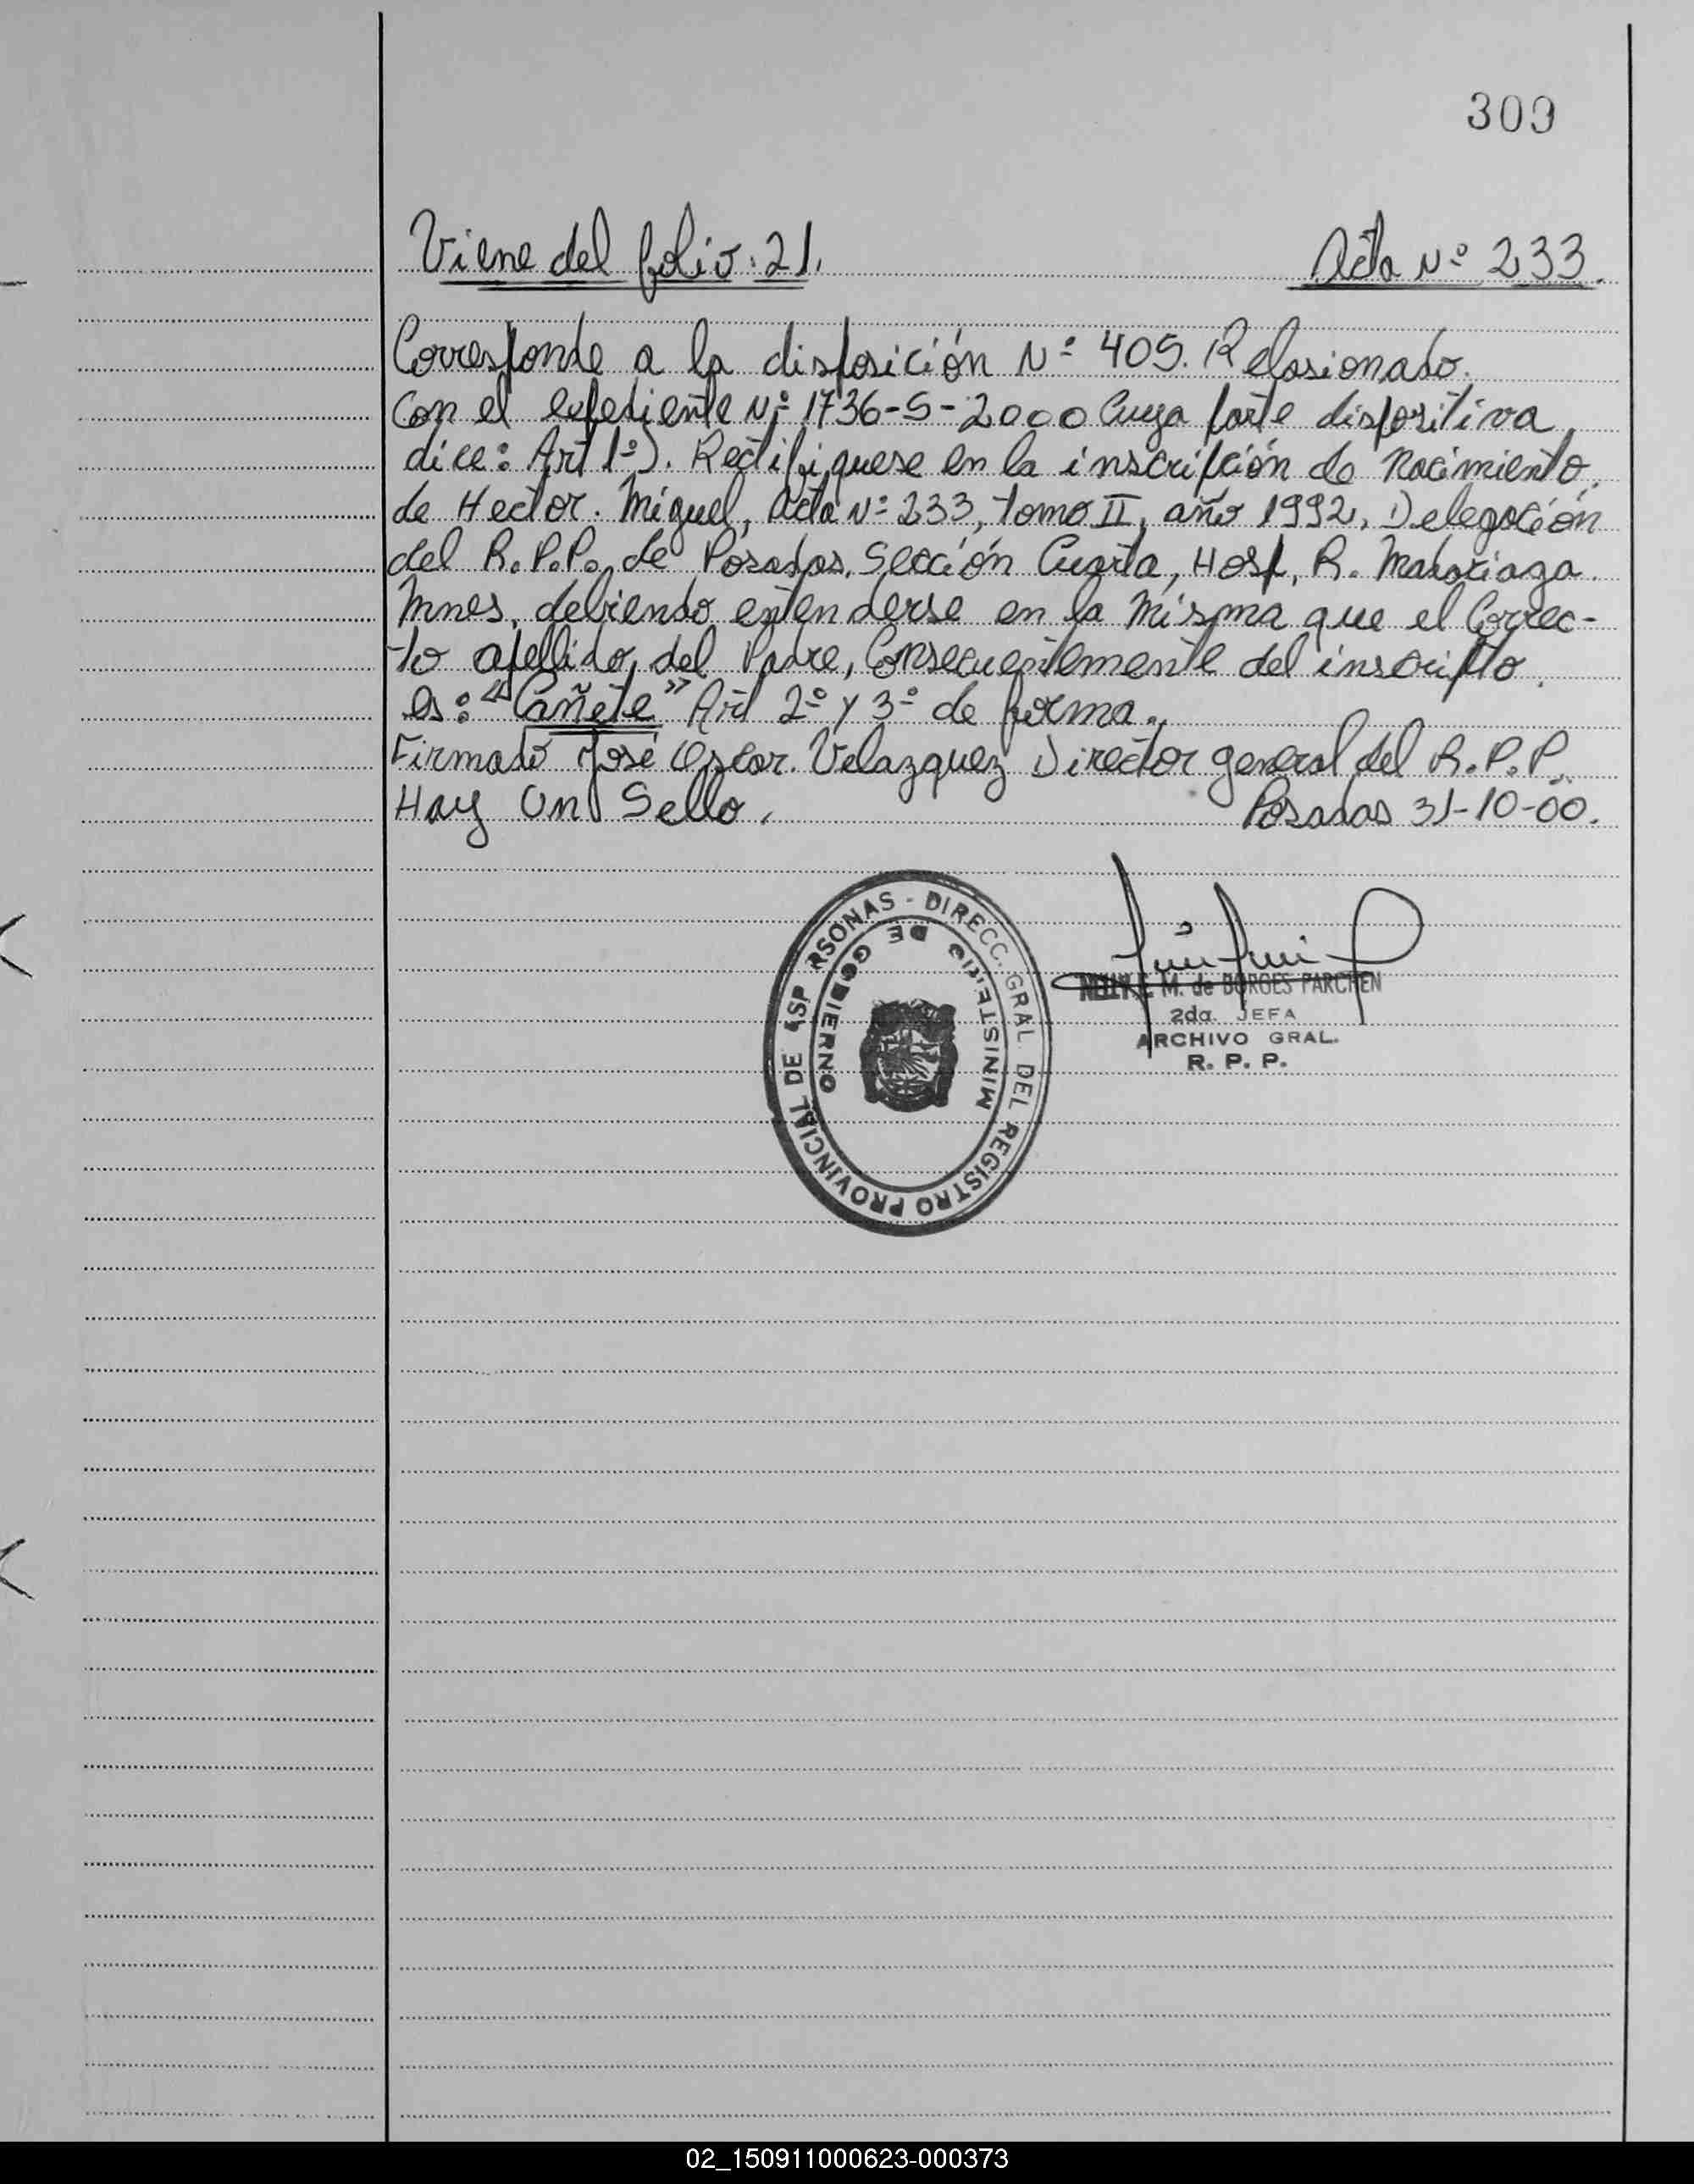 309
Viene del folio: 21. Acta Nº 233.
Corresponde a la disposición Nº 405. Relasionado.
Con el expediente Nº 1736-S-2000 Cuya parte dispositiva
dice: Art 1º). Rectifiquese en la inscripción de Nacimiento.
de Hector. Miguel, Acta Nº 233, tomo II, año 1992, Delegación
del R.P.P. de Posadas. Sección Cuarta, Hosp, R. Madariaga.
Mnes, debiendo entenderse en la misma que el Correc-
to apellido, del Padre, Consecuentemente del inscripto.
es: "Cañete" Art 2º y 3º de forma.,
Firmado José Oscar. Velazquez Director general del R.P.P.
Hay Un Sello. Posadas 31-10-00.
REGISTRO PROVINCIAL DE AS P RSONAS - DIRECC. GRAL. DEL
MINISTERIO DE GOBIERNO
M. de BORGES PARCHEN
2da. JEFA
ARCHIVO GRAL.
R. P. P.
02_150911000623-000373